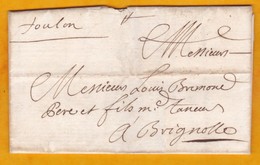 toulon
Messieurs
Messieurs Louis Bremond
Pere et fils md Taneur
à Brignolle